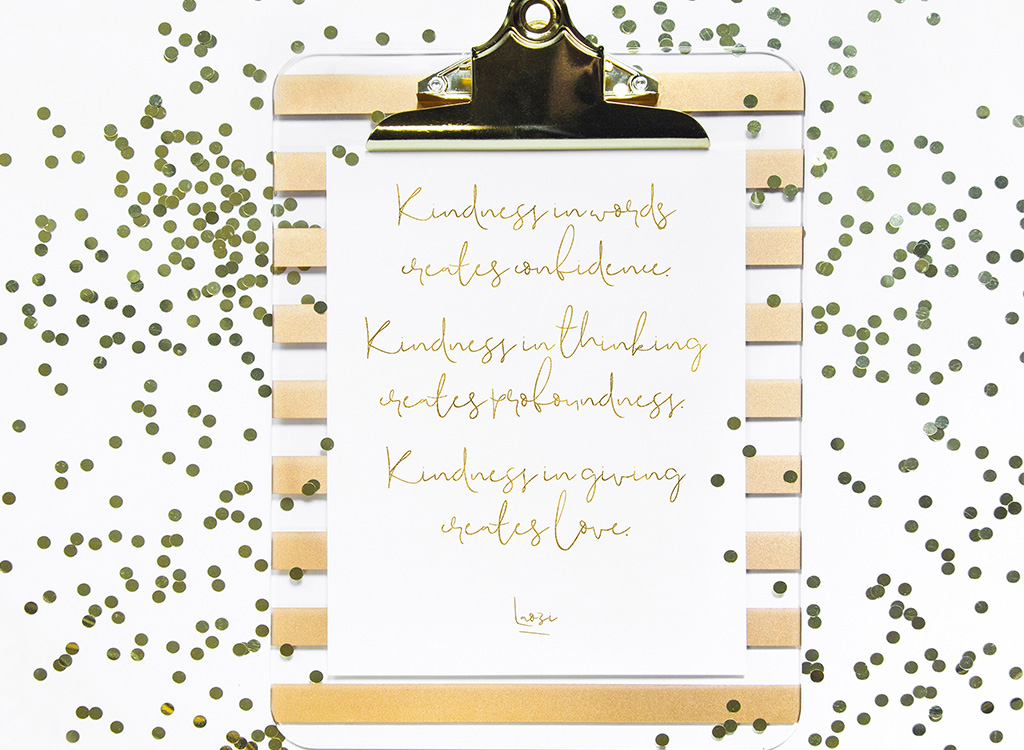 Kindness in words
creates confidence.
Kindness in thinking
creates profoundness.
Kindness in giving
creates love.
Laozi